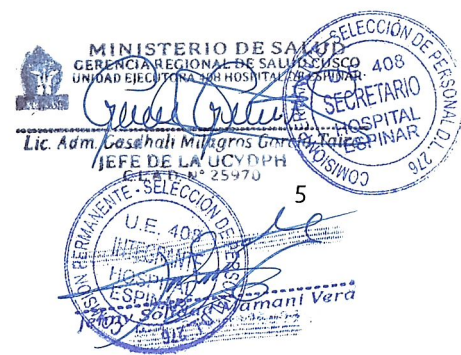 MINISTERIO DE SALUD
GERENCIA REGIONAL DE SALUD CUSCO
UNIDAD EJECUTORA 408 HOSPITAL DE ESPINAR
Lic. Adm. Gasdhali Milagros García
JEFE DE LA UCYDPH
C.L.A.D. N° 25970
COMISIÓN SELECCIÓN DE PERSONAL D.L. 276
408
SECRETARIO
HOSPITAL
ESPINAR
5
PERMANENTE - SELECCIÓN DE PERSONAL
U.E. 408
INTEGRANTE
HOSPITAL
ESPINAR
276
Mamani Vera